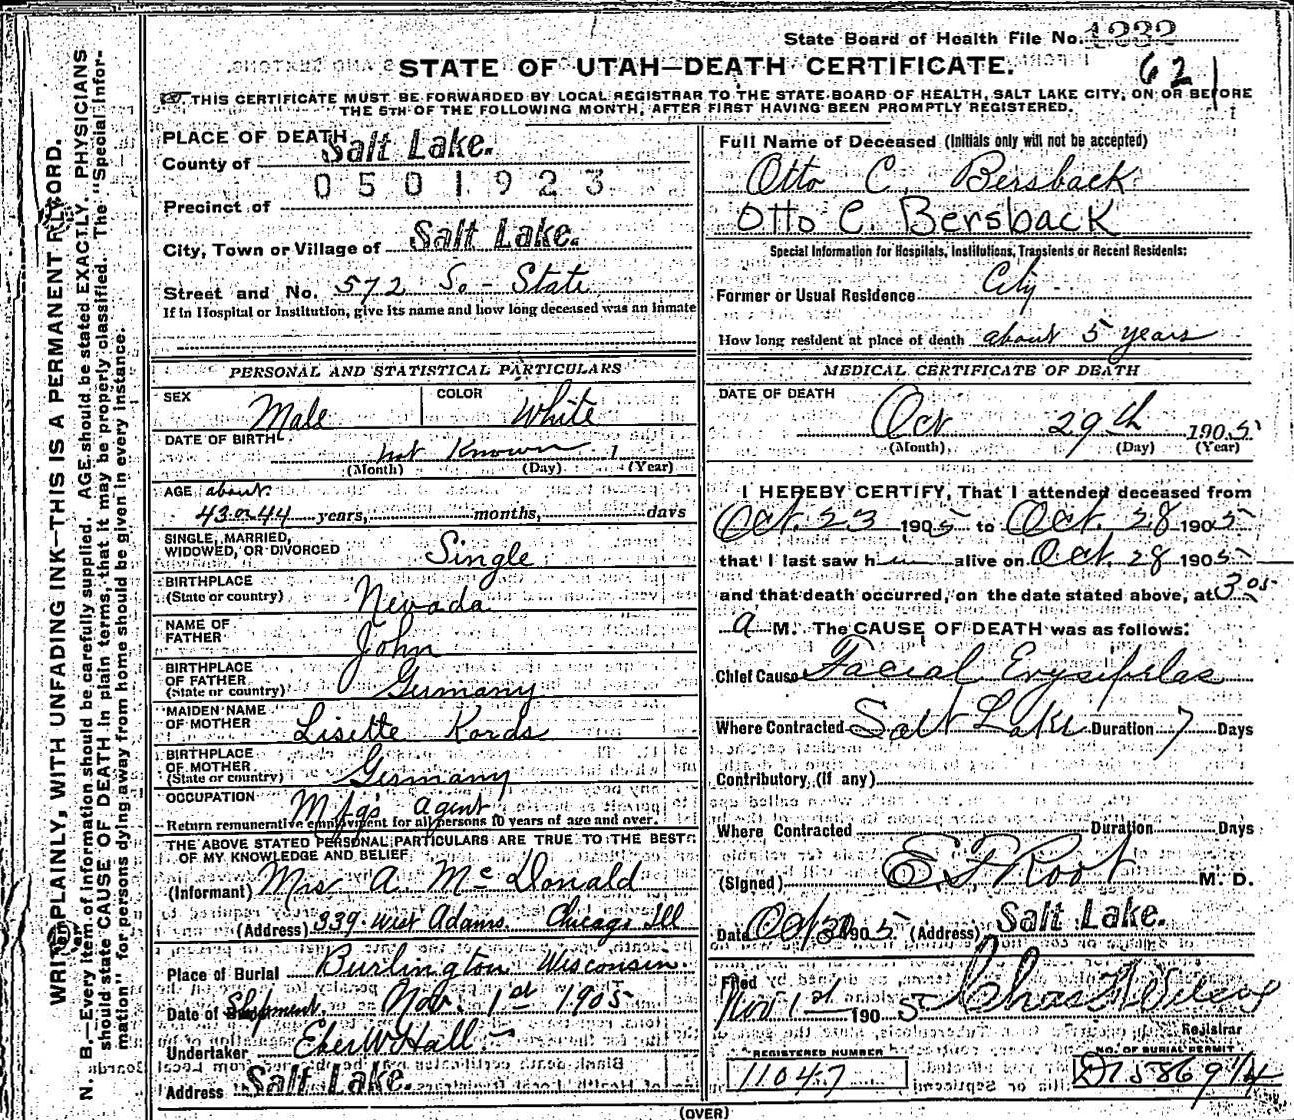 State Board of Health File No. 1232
STATE OF UTAH—DEATH CERTIFICATE.
621
THIS CERTIFICATE MUST BE FORWARDED BY LOCAL REGISTRAR TO THE STATE BOARD OF HEALTH, SALT LAKE CITY, ON OR BEFORE
THE 5TH OF THE FOLLOWING MONTH, AFTER FIRST HAVING BEEN PROMPTLY REGISTERED.
WRITE PLAINLY, WITH UNFADING INK—THIS IS A PERMANENT RECORD.
N. B.—Every item of information should be carefully supplied. AGE should be stated EXACTLY. PHYSICIANS
should state CAUSE OF DEATH in plain terms, that it may be properly classified. The "Special Infor-
mation" for persons dying away from home should be given in every instance.
PLACE OF DEATH
County of Salt Lake.
0501923
Precinct of
City, Town or Village of Salt Lake.
Street and No. 572 So - State
If in Hospital or Institution, give its name and how long deceased was an inmate
PERSONAL AND STATISTICAL PARTICULARS
SEX Male COLOR White
DATE OF BIRTH not Known 1
(Month) (Day) (Year)
AGE about
43 or 44 years, months, days
SINGLE, MARRIED,
WIDOWED, OR DIVORCED Single
BIRTHPLACE
(State or country) Nevada
NAME OF
FATHER John
BIRTHPLACE
OF FATHER
(State or country) Germany
MAIDEN NAME
OF MOTHER Lisette Kords
BIRTHPLACE
OF MOTHER
(State or country) Germany
OCCUPATION Mfgs agent
Return remunerative employment for all persons 10 years of age and over.
THE ABOVE STATED PERSONAL PARTICULARS ARE TRUE TO THE BEST
OF MY KNOWLEDGE AND BELIEF
(Informant) Mrs A McDonald
(Address) 339 West Adams. Chicago Ill
Place of Burial Burlington Wisconsin
Date of Shipment. Nov. 1st 1905
Undertaker Eber W Hall
Address Salt Lake.
Full Name of Deceased (Initials only will not be accepted)
Otto C. Bersback
Otto C. Bersback
Special Information for Hospitals, Institutions, Transients or Recent Residents:
Former or Usual Residence City
How long resident at place of death about 5 years
MEDICAL CERTIFICATE OF DEATH
DATE OF DEATH
Oct 29th 1905
(Month) (Day) (Year)
I HEREBY CERTIFY, That I attended deceased from
Oct. 23 1905 to Oct. 28 1905
that I last saw him alive on Oct. 28 1905
and that death occurred, on the date stated above, at 3 05
a M. The CAUSE OF DEATH was as follows:
Chief Cause Facial Erysipelas
Where Contracted Salt Lake Duration 7 Days
Contributory, (if any)
Where Contracted Duration Days
(Signed) E. F. Root M. D.
Date Oct 30 1905 (Address) Salt Lake.
Filed
Nov 1st 1905 Chas Wilcox
Registrar
REGISTERED NUMBER
11047
NO. OF BURIAL PERMIT
D15869 1/4
(OVER)